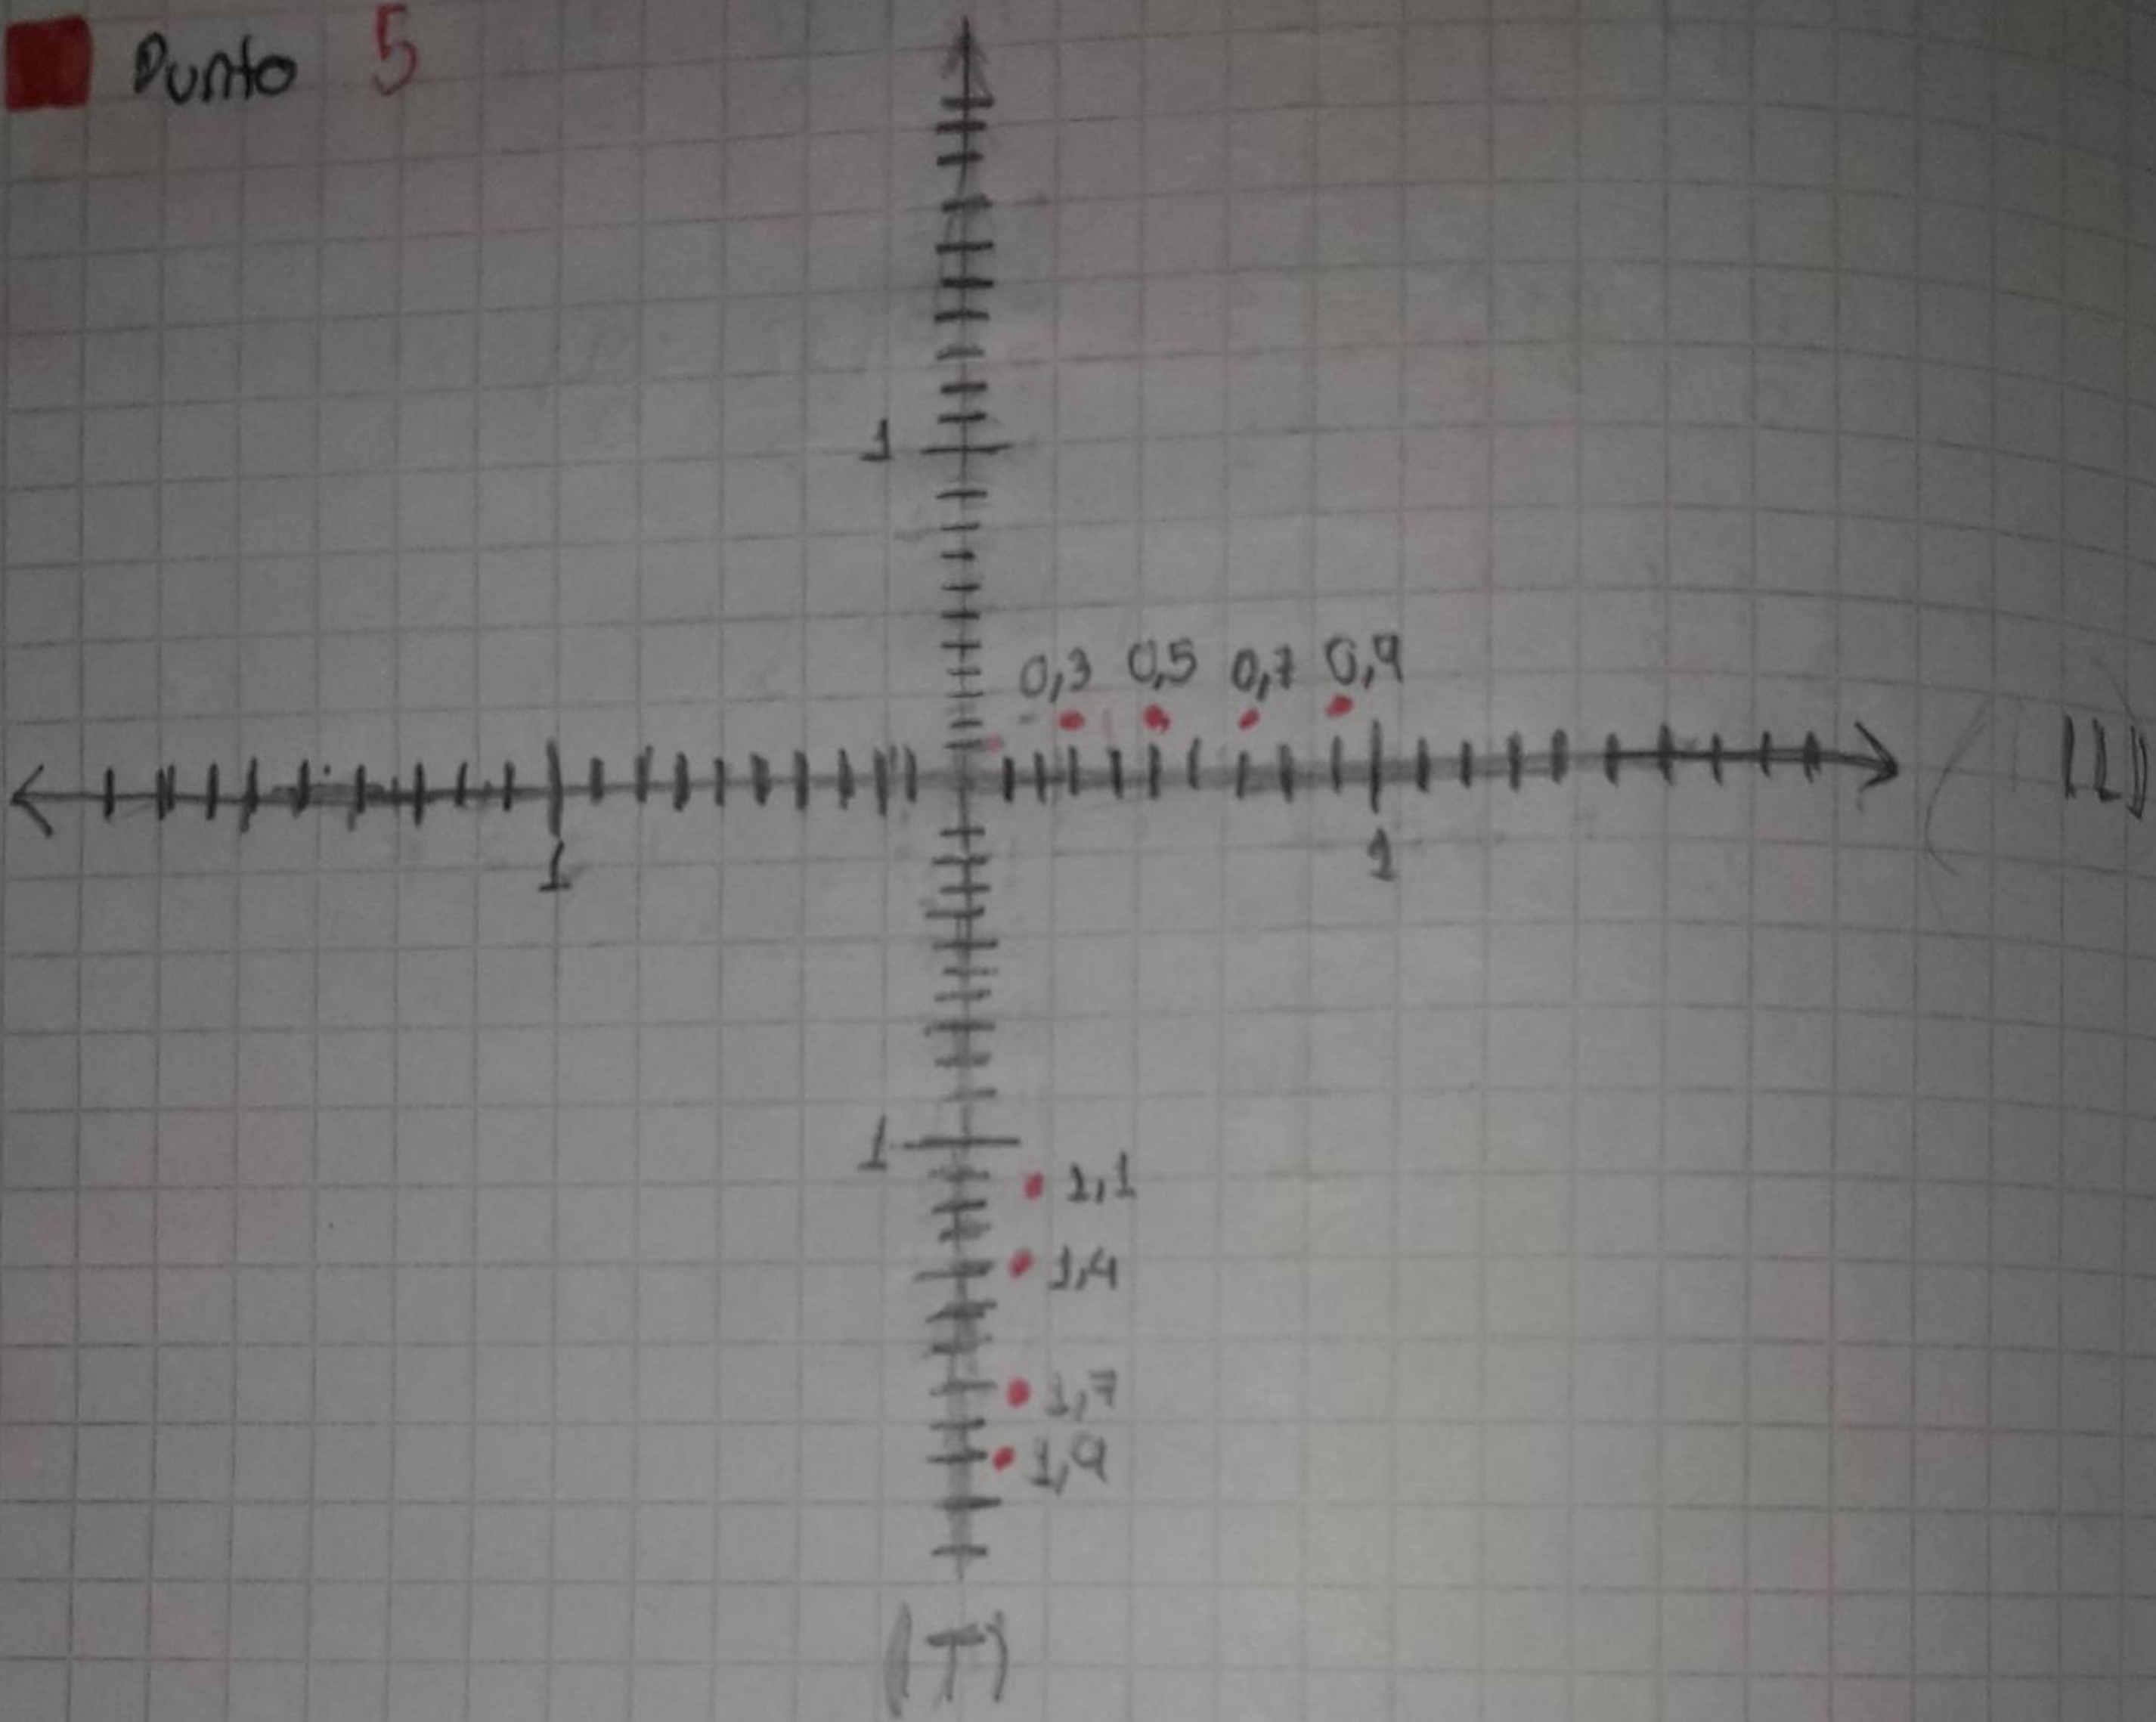 Punto 5
1
0,3 0,5 0,7 0,9
1 1
1
1,1
1,4
1,7
1,9
(T)